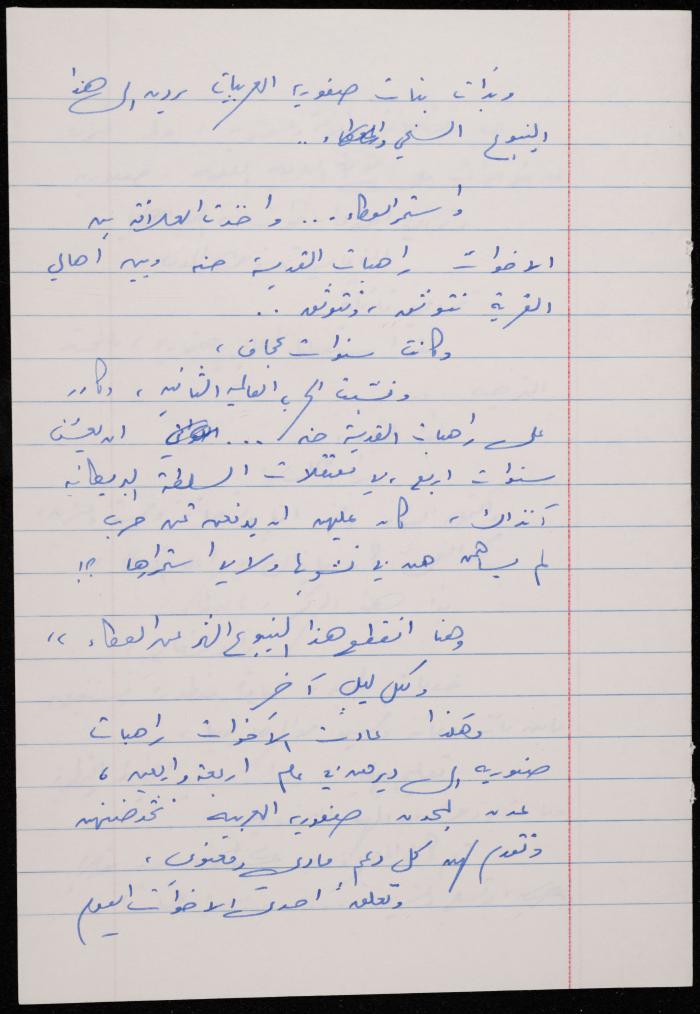 وبدأت بنات صفورية العربيات يردن الى هذا
الينبوع السخي ..
واستمر العطاء ... واخذت العلاقة بين
الاخوات راهبات القديسة حنه وبين اهالي
القرية تتوثق ، وتتوثق ..
وكانت سنوات عجاف ،
ونشبت الحرب العالمية الثانية ، وكان
على راهبات القديسة حنه ... ان يعشن
سنوات اربع ، في معتقلات السلطة البريطانية
آنذاك ، كان عليهن ان يدفعن ثمن حرب
لم يساهمن هن في نشوبها ولا في استمرارها ؟!
وهنا انقطع هذا الينبوع الثر عن العطاء ،،
ولكل ليلٍ آخر
وهكذا عادت الاخوات راهبات
صفورية الى ديرهن في عام اربعة واربعين ،
عدن ليجدن صفورية العربية تحتضنهن
وتقدم لهن كل دعم مادي ومعنوي ،
وتعلق احدى الاخوات اليوم